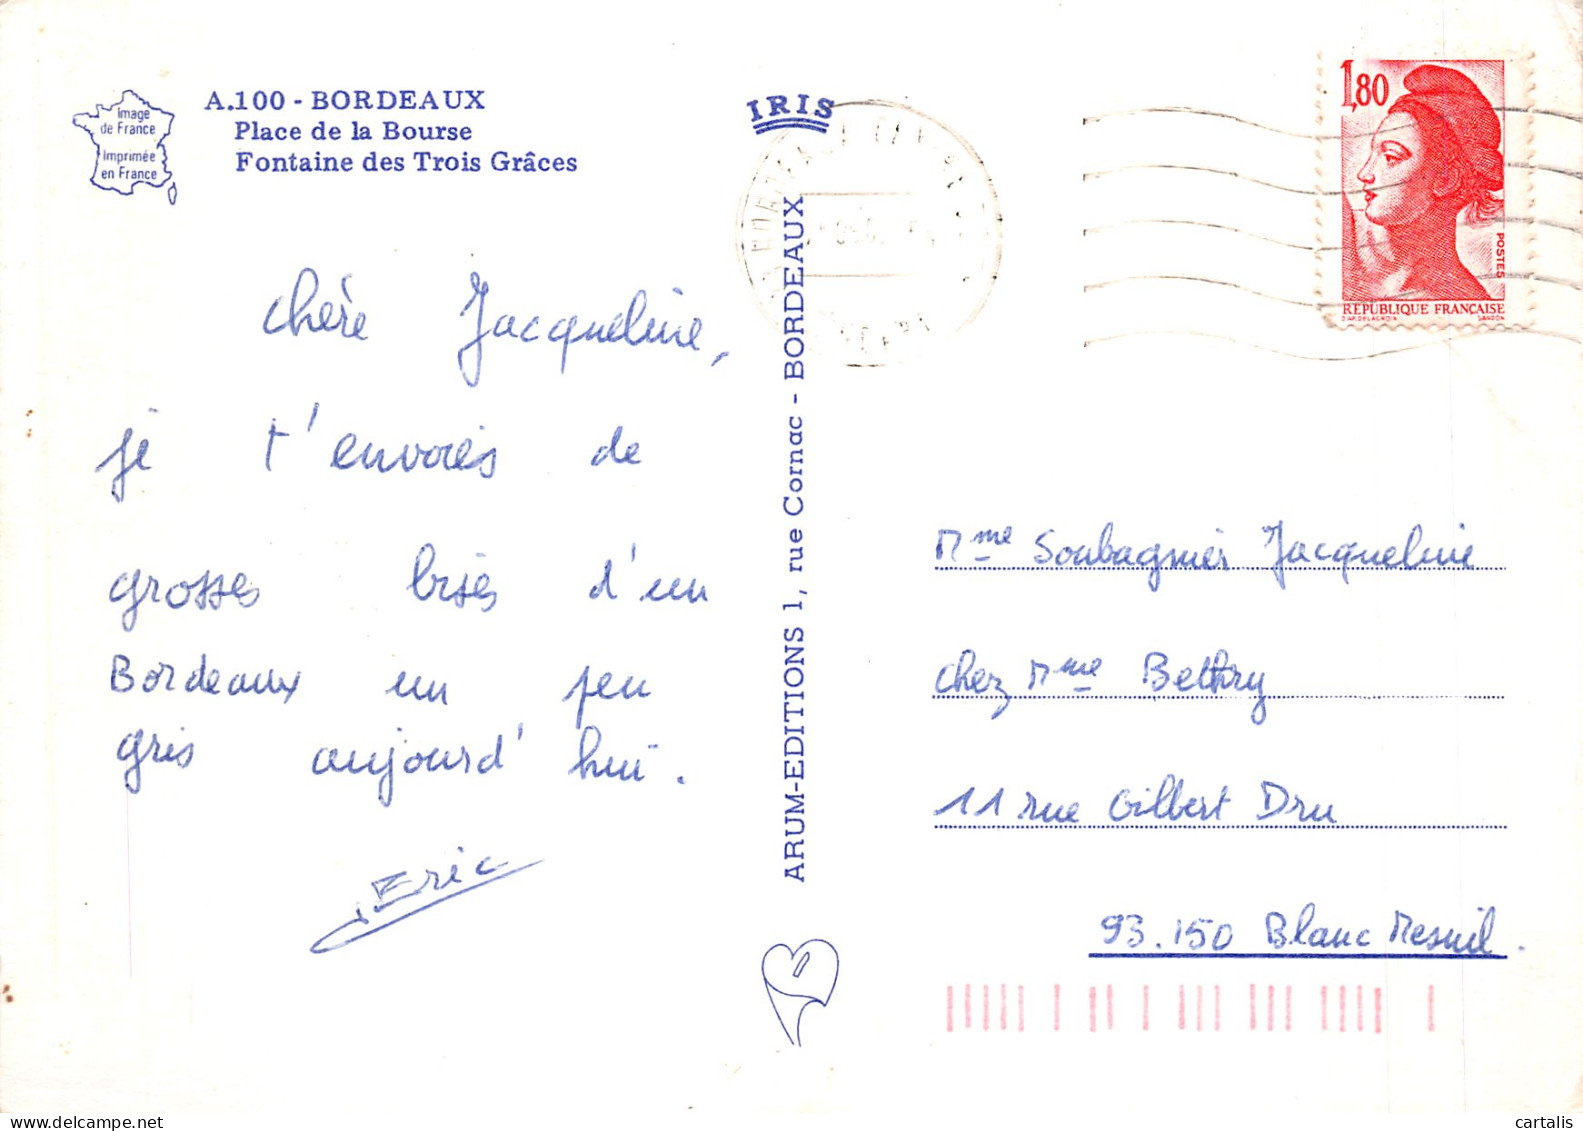 Image
de France
Imprimée
en France
A.100 - BORDEAUX
Place de la Bourse
Fontaine des Trois Grâces
IRIS
1,80
POSTES
REPUBLIQUE FRANÇAISE
D'AP. DELACROIX GANDON
chère Jacqueline,
je t'envoies de
grosses bises d'un
Bordeaux un peu
gris aujourd'hui.
Eric
ARUM-EDITIONS 1, rue Cornac - BORDEAUX
Mme Soubagnier Jacqueline
chez Mme Bethry
11 rue Gilbert Dru
93.150 Blanc Mesnil.
www.delcampe.net
cartalis